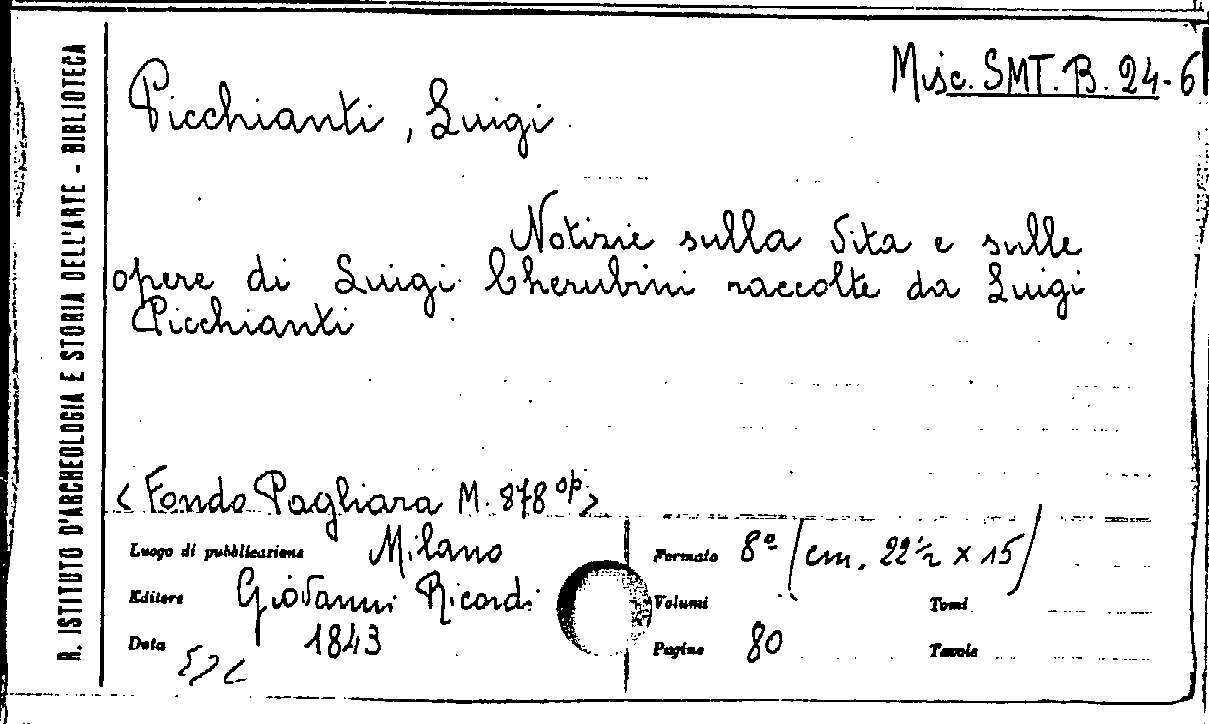 R. ISTITUTO D'ARCHEOLOGIA E STORIA DELL'ARTE - BIBLIOTECA
Misc. SMT. B. 24-6
Picchianti, Luigi
Notizie sulla Vita e sulle
opere di Luigi Cherubini raccolte da Luigi
Picchianti
< Fondo Pagliara M. 878 op >
Luogo di pubblicazione Milano
Formato 8º (cm. 22½ x 15)
Editore Giovanni Ricordi
Volumi
Tomi
Data 1843
Pagine 80
Tavole